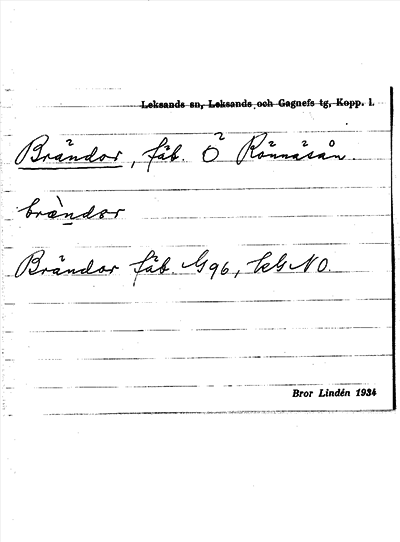 Leksands sn, Leksands och Gagnefs tg, Kopp. l.
Brändor, fäb. Ö Rönnäsån.
brä̀ndor
Brändor fäb. G96, kG NO.
Bror Lindén 1934